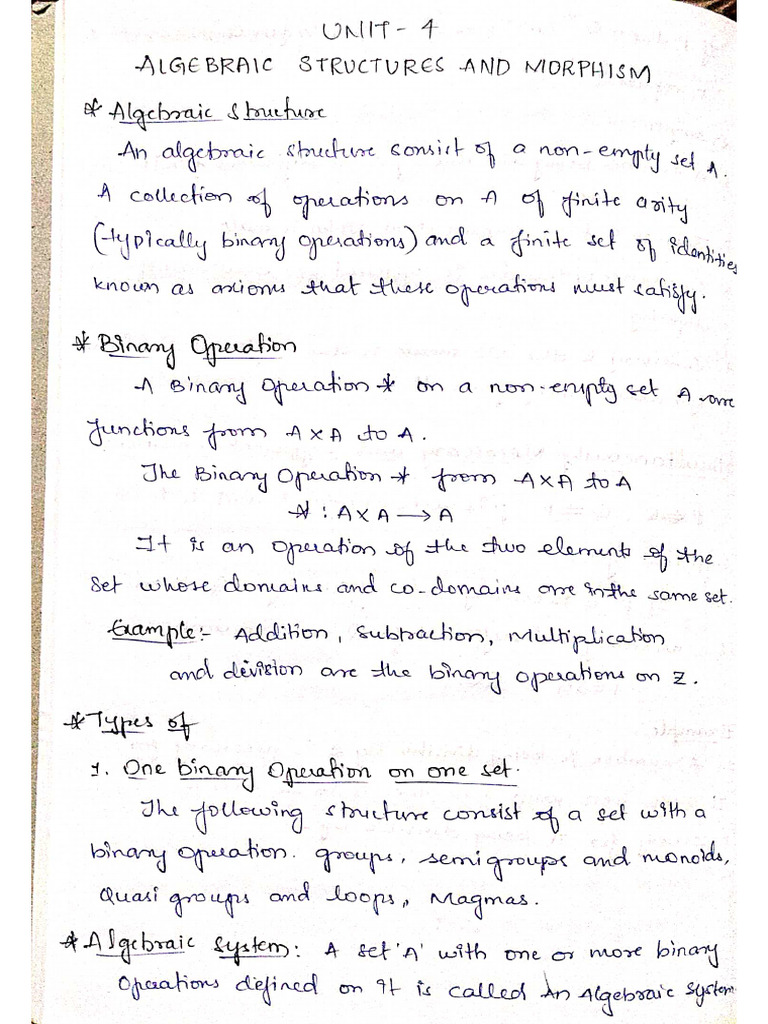 UNIT - 4
ALGEBRAIC STRUCTURES AND MORPHISM
* Algebraic Structure
An algebraic structure consist of a non-empty set A.
A collection of operations on A of finite arity
(typically binary operations) and a finite set of identities
known as axioms that these operations must satisfy.
* Binary Operation
A Binary Operation * on a non-empty set A are
functions from A×A to A.
The Binary Operation * from A×A to A
* : A×A → A
It is an operation of the two elements of the
set whose domains and co-domains are in the same set.
Example:- Addition, Subtraction, Multiplication
and devision are the binary operations on Z.
* Types of
1. One binary Operation on one set.
The following structure consist of a set with a
binary operation. groups, semigroups and monoids,
Quasi groups and loops, Magmas.
* Algebraic System: A set 'A' with one or more binary
Operations defined on it is called An Algebraic System